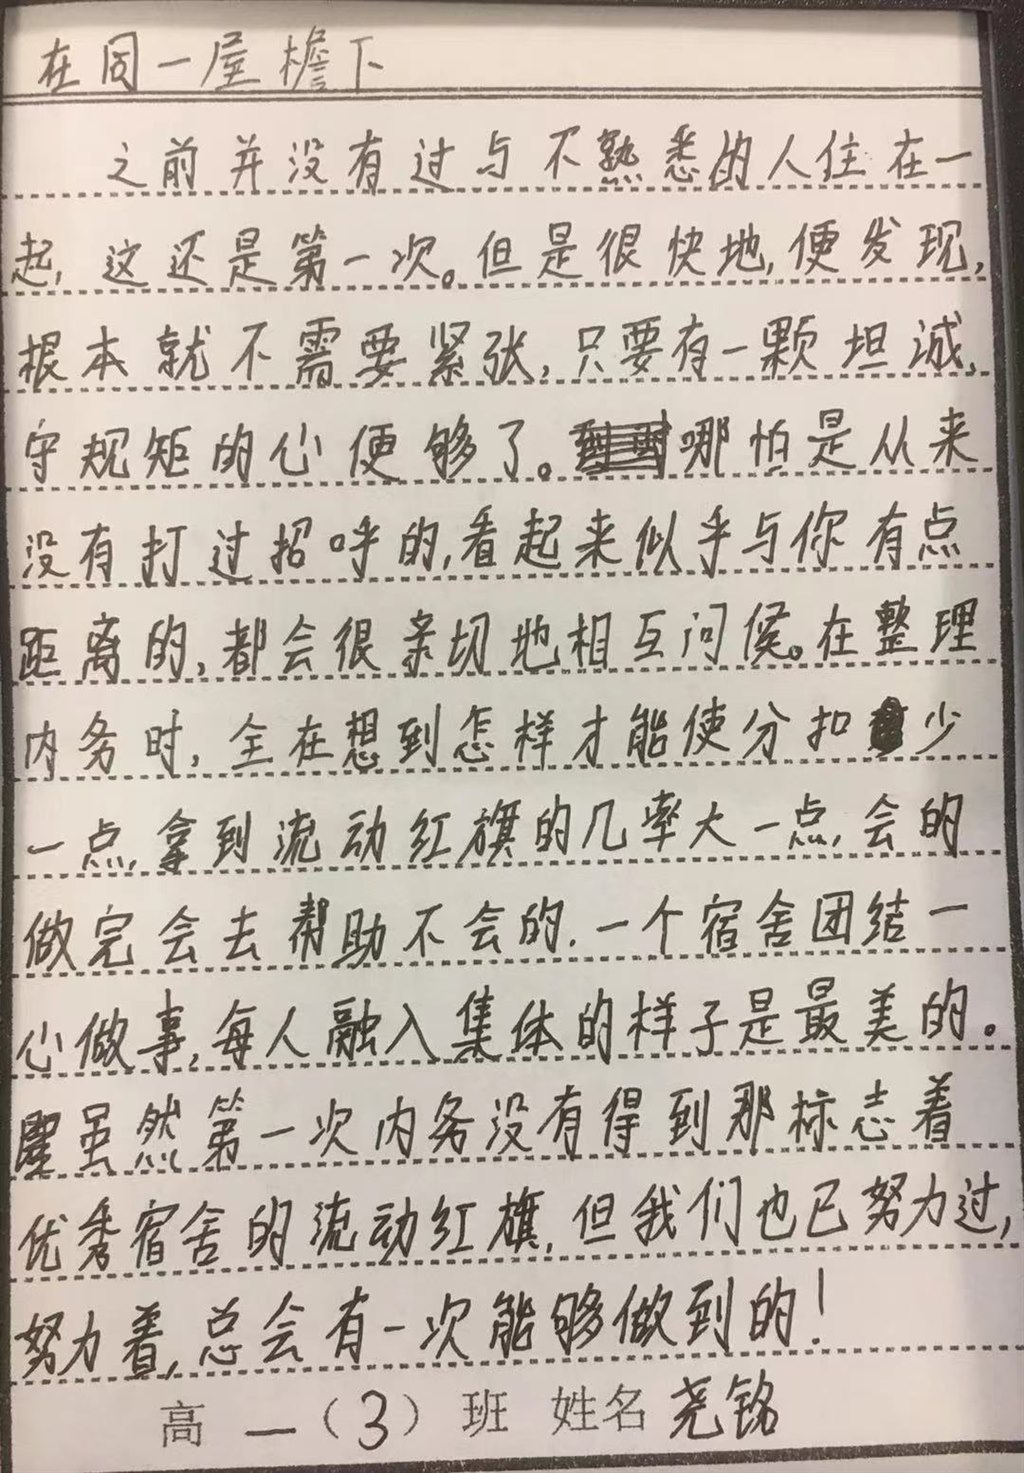 在同一屋檐下
之前并没有过与不熟悉的人住在一
起,这还是第一次。但是很快地,便发现,
根本就不需要紧张,只要有一颗坦诚,
守规矩的心便够了。哪怕是从来
没有打过招呼的,看起来似乎与你有点
距离的,都会很亲切地相互问候。在整理
内务时,全在想到怎样才能使分扣少
一点,拿到流动红旗的几率大一点,会的
做完会去帮助不会的.一个宿舍团结一
心做事,每人融入集体的样子是最美的。
虽然第一次内务没有得到那标志着
优秀宿舍的流动红旗,但我们也已努力过,
努力着,总会有一次能够做到的!
高一(3)班 姓名 尧铭